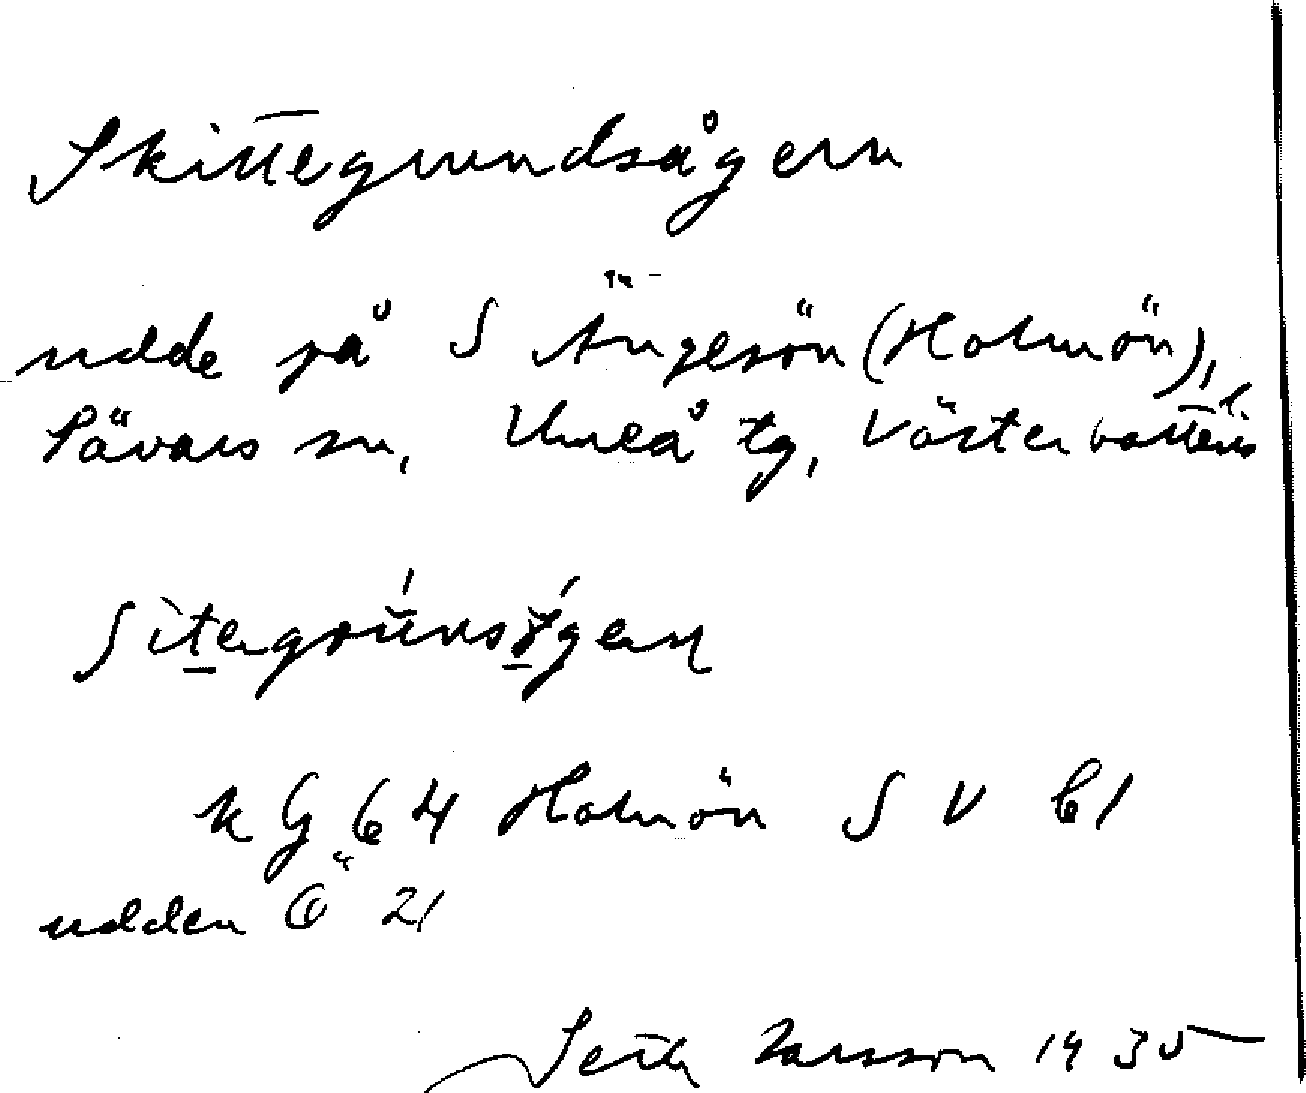 Skittegrundsågern
udde på S Ängesön (Holmön),
Sävars sn, Umeå tg, Västerbottens l.
kG 64 Holmön S V 61
udden Ö 21
Seth Larsson 1935